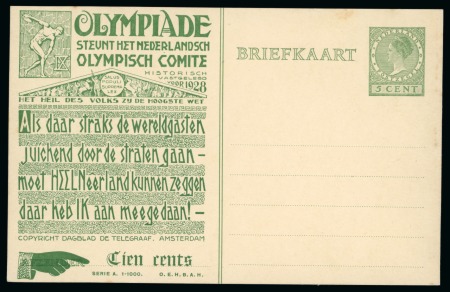 OLYMPIADE
STEUNT HET NEDERLANDSCH
OLYMPISCH COMITE
HISTORISCH
VASTGELEGD
VOOR 1928
IX
SALUS
POPULI
SUPREMA
LEX
HET HEIL DES VOLKS ZY DE HOOGSTE WET
Als daar straks de wereldgasten
juichend door de straten gaan –
moet HEEL Neerland kunnen zeggen
daar heb IK aan meegedaan! –
COPYRIGHT DAGBLAD DE TELEGRAAF, AMSTERDAM
Tien cents
SERIE A. 1-1000. O. E. H. B. A. H.
BRIEFKAART
5 CENT